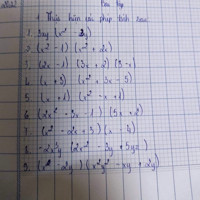 Bài tập
1. Thực hiện các phép tính sau:
1. 3xy (x² - 2y)
2. (x² - 1) (x² + 2x)
3. (2x - 1) (3x + 2) (3 - x)
4. (x + 3) (x² + 3x - 5)
5. (x + 1) (x² - x + 1)
6. (2x² - 3x - 1) (5x + 2)
7. (x² - 2x + 3) (x - 4)
8. -2x³y (2x² - 3y + 5yz)
9. (x - 2y) (x²y² - xy + 2y)